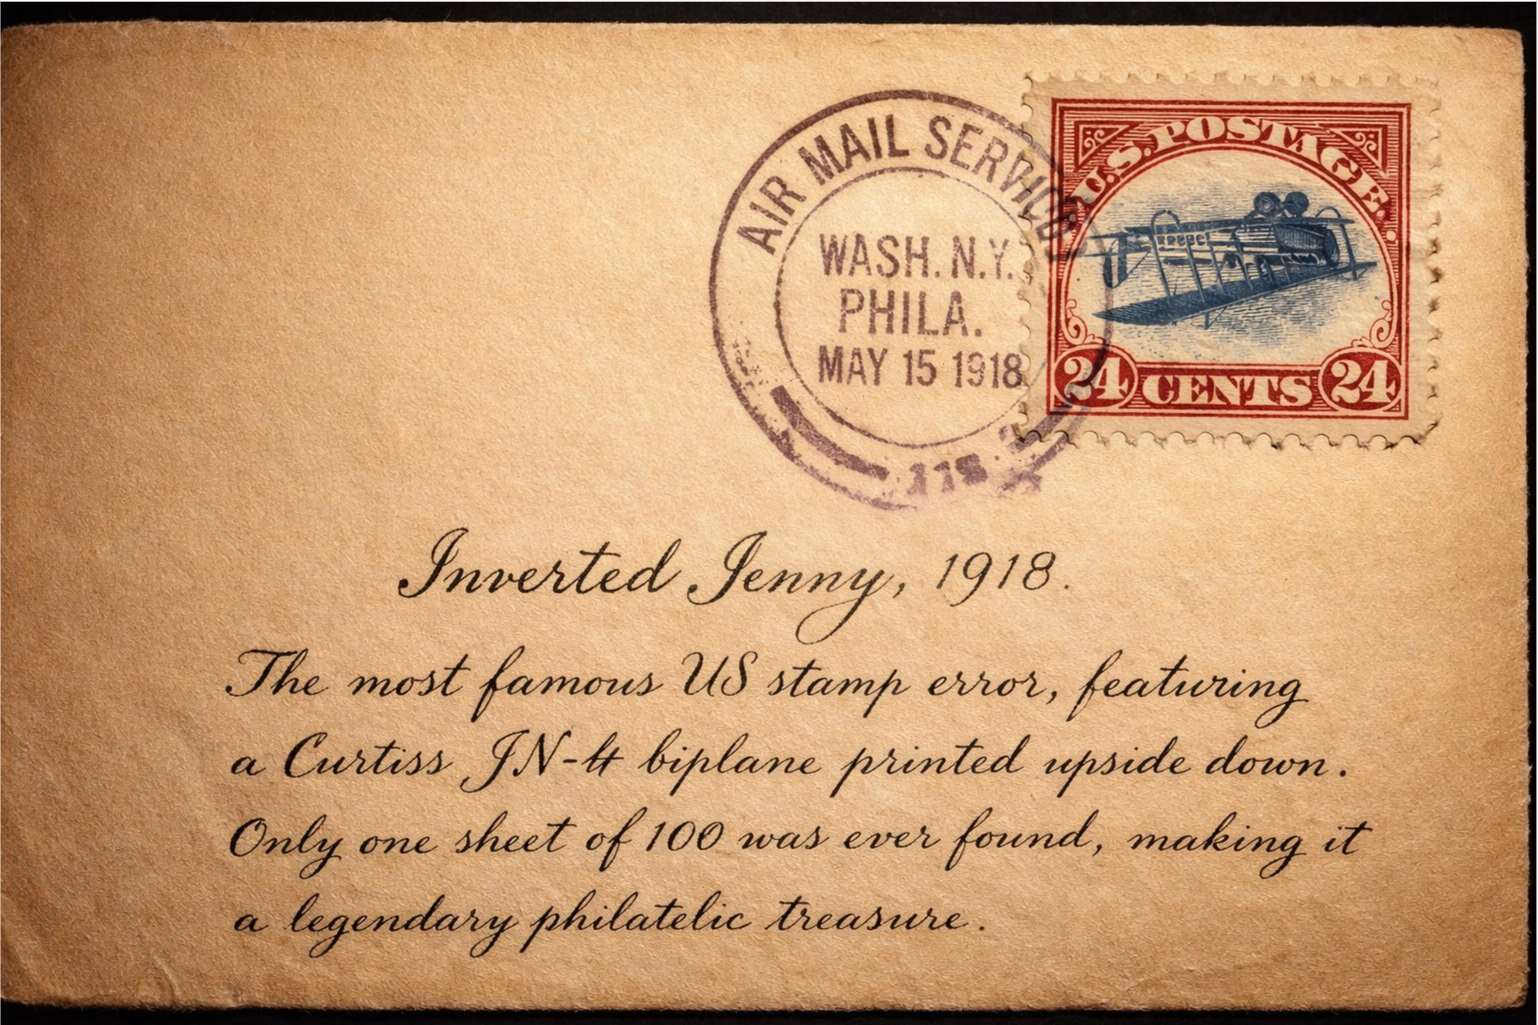 AIR MAIL SERVICE
WASH. N.Y.
PHILA.
MAY 15 1918
U.S. POSTAGE.
24 CENTS 24
Inverted Jenny, 1918.
The most famous US stamp error, featuring
a Curtiss JN-4 biplane printed upside down.
Only one sheet of 100 was ever found, making it
a legendary philatelic treasure.